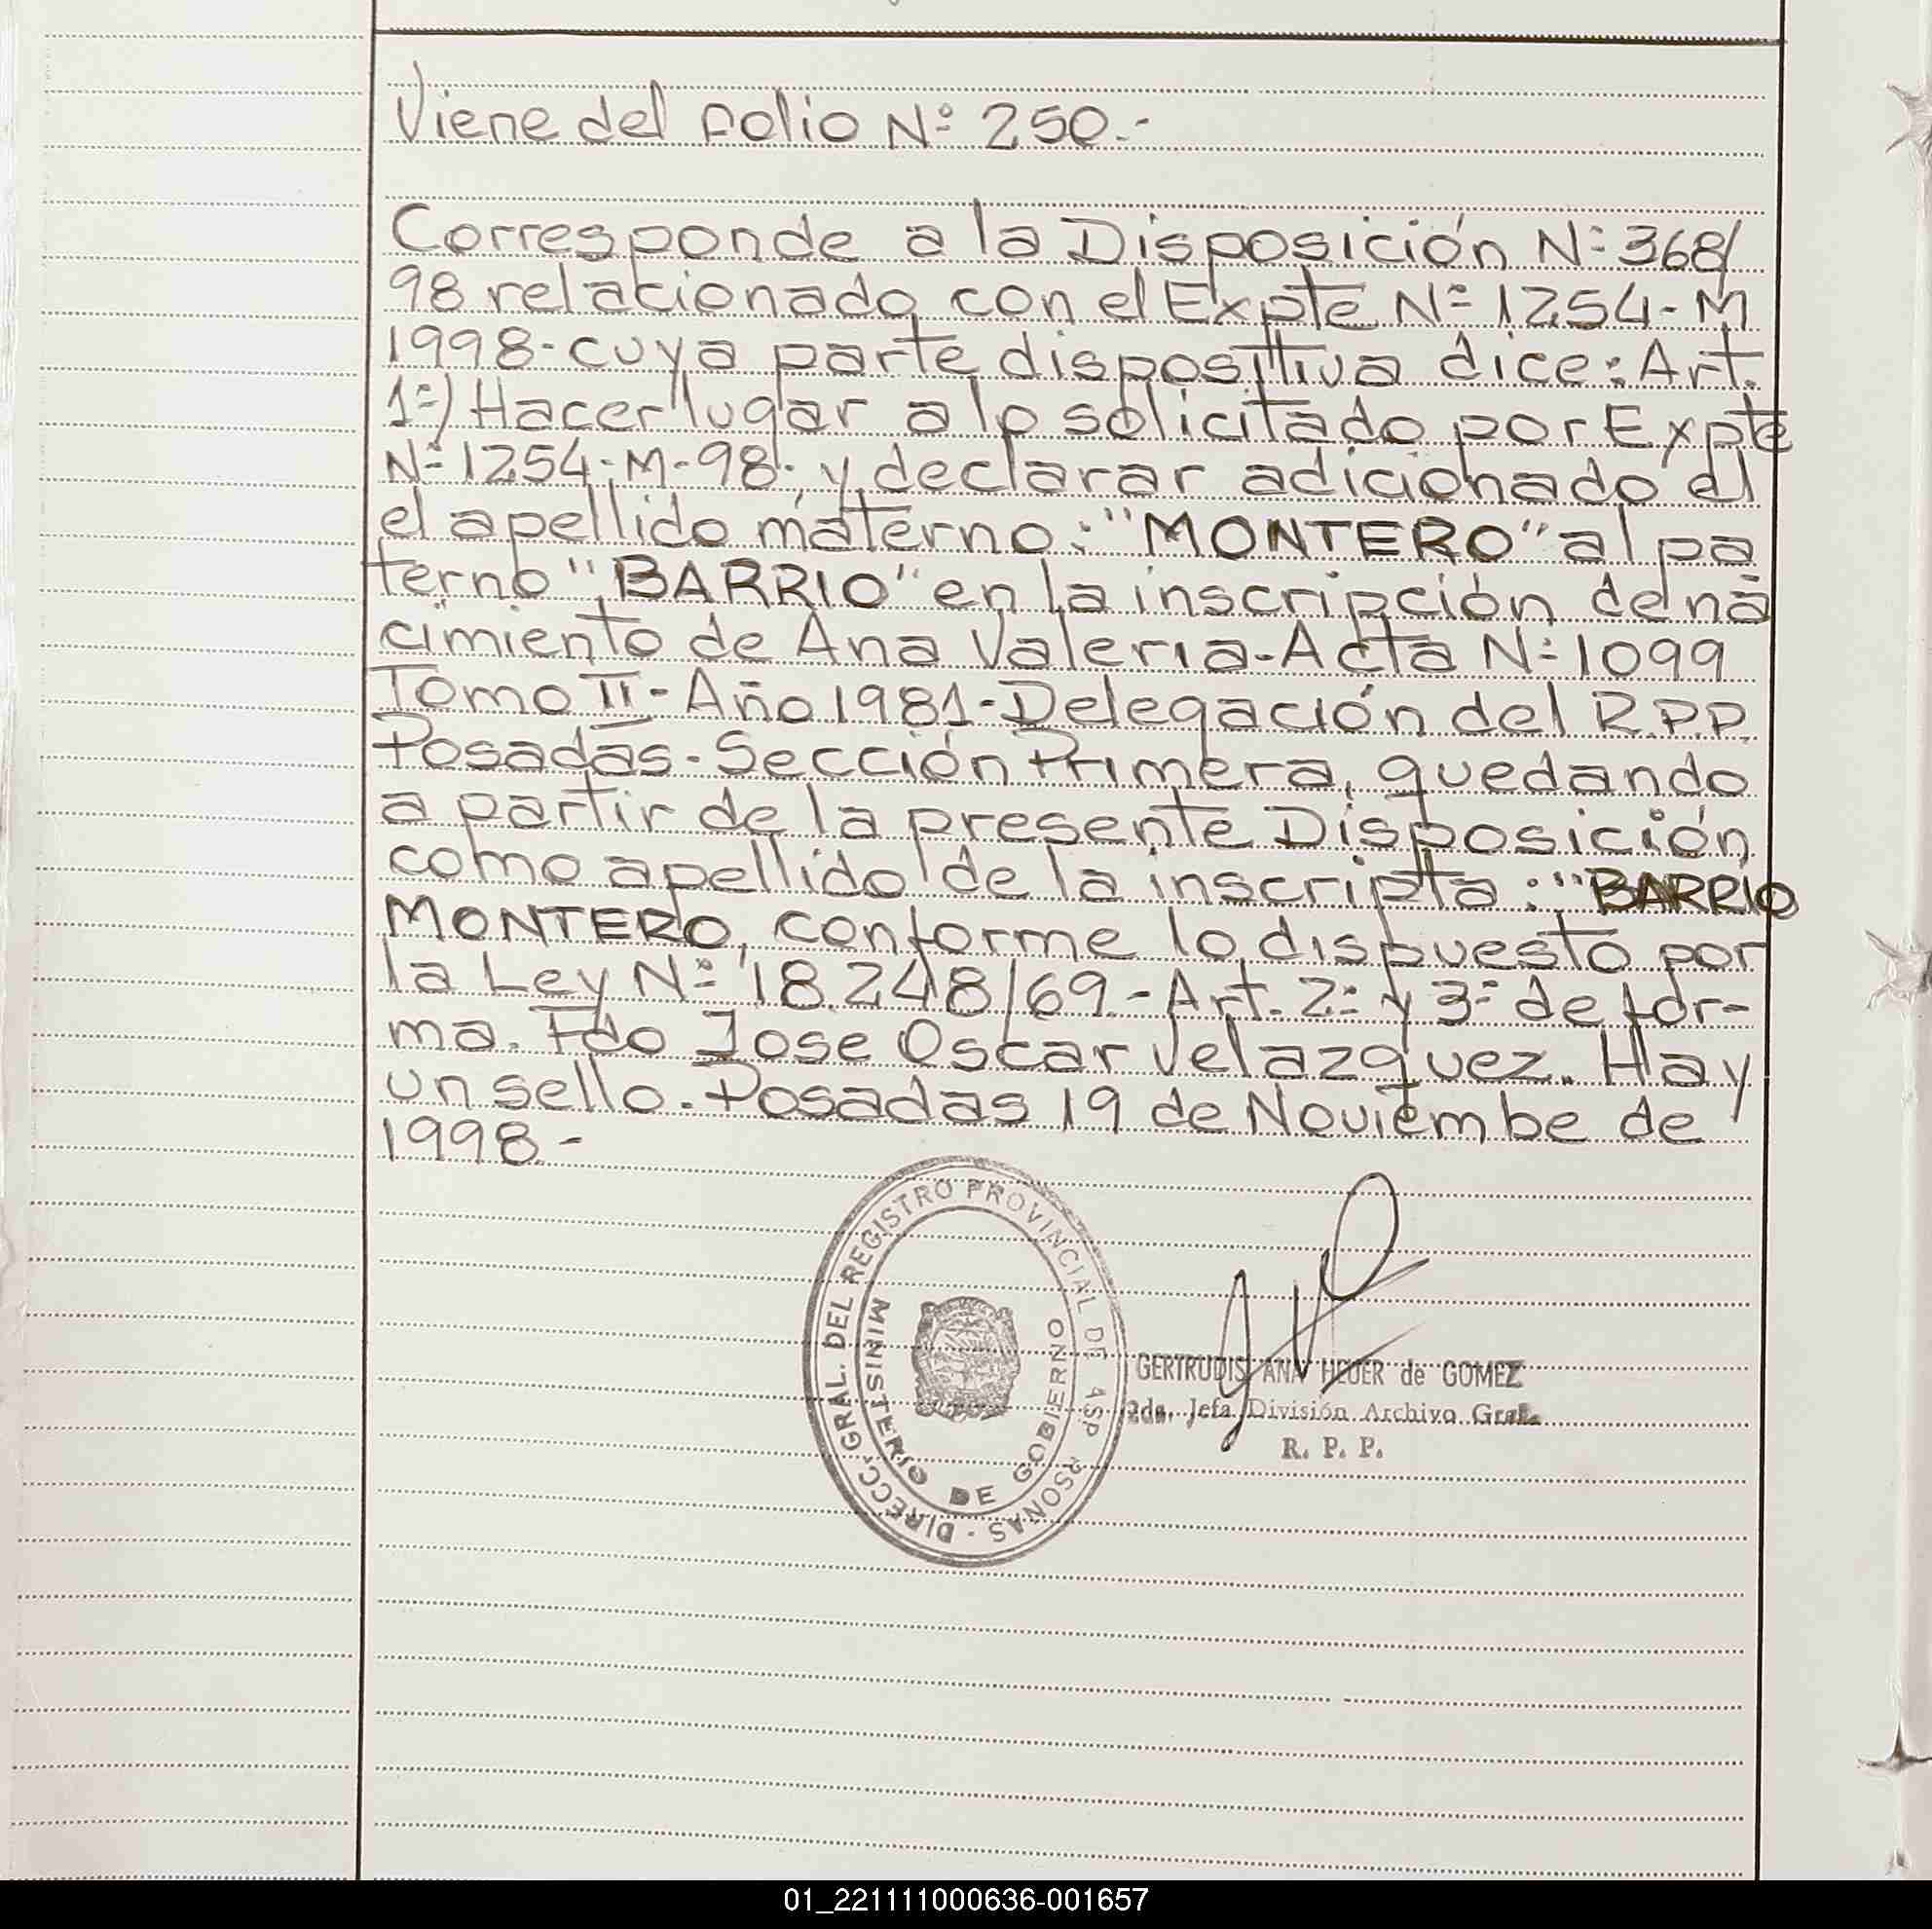 Viene del folio Nº 250.-
Corresponde a la Disposición Nº 368/
98 relacionado con el Expte Nº 1254-M
1998-cuya parte dispositiva dice: Art.
1º) Hacer lugar a lo solicitado por Expte
Nº 1254-M-98; y declarar adicionado el
el apellido materno: "MONTERO" al pa
terno "BARRIO" en la inscripción de na
cimiento de Ana Valeria-Acta Nº 1099
Tomo II-Año 1981-Delegación del R.P.P.
Posadas-Sección Primera, quedando
a partir de la presente Disposición
como apellido de la inscripta: "BARRIO
MONTERO, conforme lo dispuesto por
la Ley Nº 18.248/69-Art. 2º y 3º de for-
ma. Fdo Jose Oscar Velazquez. Hay
un sello. Posadas 19 de Noviembe de
1998.-
DIRECC. GRAL. DEL REGISTRO PROVINCIAL DE PERSONAS -
MINISTERIO DE GOBIERNO
GERTRUDIS ANA HEUER de GOMEZ
2da. Jefa División Archivo Gral.
R. P. P.
01_221111000636-001657